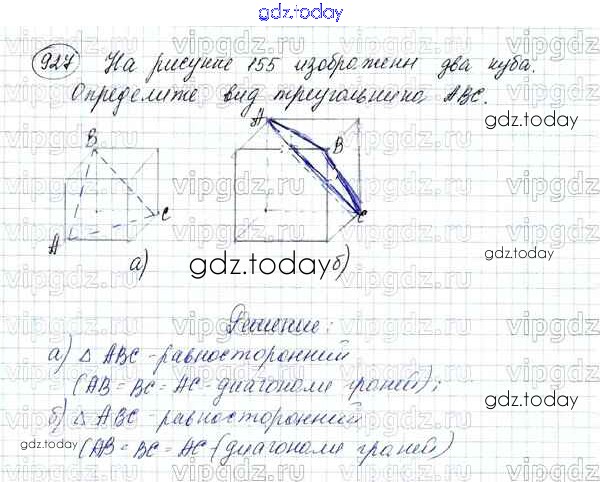 gdz.today
927 На рисунке 155 изображены два куба.
Определите вид треугольника ABC.
gdz.today
B
A
C
а)
A
B
C
б)
gdz.today
gdz.today
Решение:
а) △ ABC - равносторонний
(AB = BC = AC - диагонали граней);
gdz.today
б) △ ABC - равносторонний
gdz.today
(AB = BC = AC (диагонали граней)